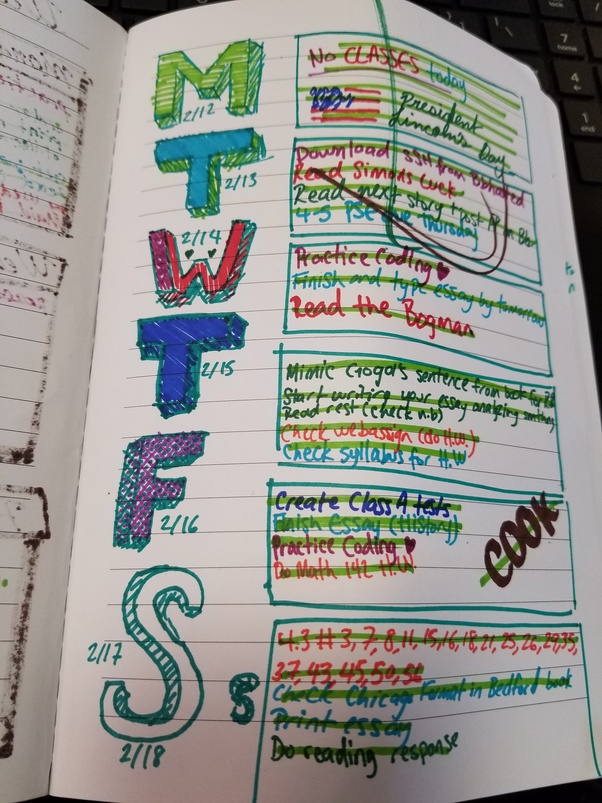 M
2/12
No CLASSES today
President
Lincoln's Day
T
2/13
Download SSH from
Read Simons Luck
Read next story + post
4-5 PSE due Thursday
W
2/14
Practice Coding ♥
Finish and type essay by tomorrow
Read the Bogman
T
2/15
Mimic Gogol's sentence from book for
Start writing your essay analyzing something
Read rest (check n.b)
Check webassign (do H.W.)
Check syllabus for H.W
F
2/16
Create Class A tests
Finish Essay (History)
Practice Coding ♥
Do Math 142 H.W.
COOK
S
2/17
S
2/18
4.3 # 3, 7, 8, 11, 15, 16, 18, 21, 25, 26, 29, 35,
37, 43, 45, 50, 56
Check Chicago Format in Bedford book
Print essay
Do reading response